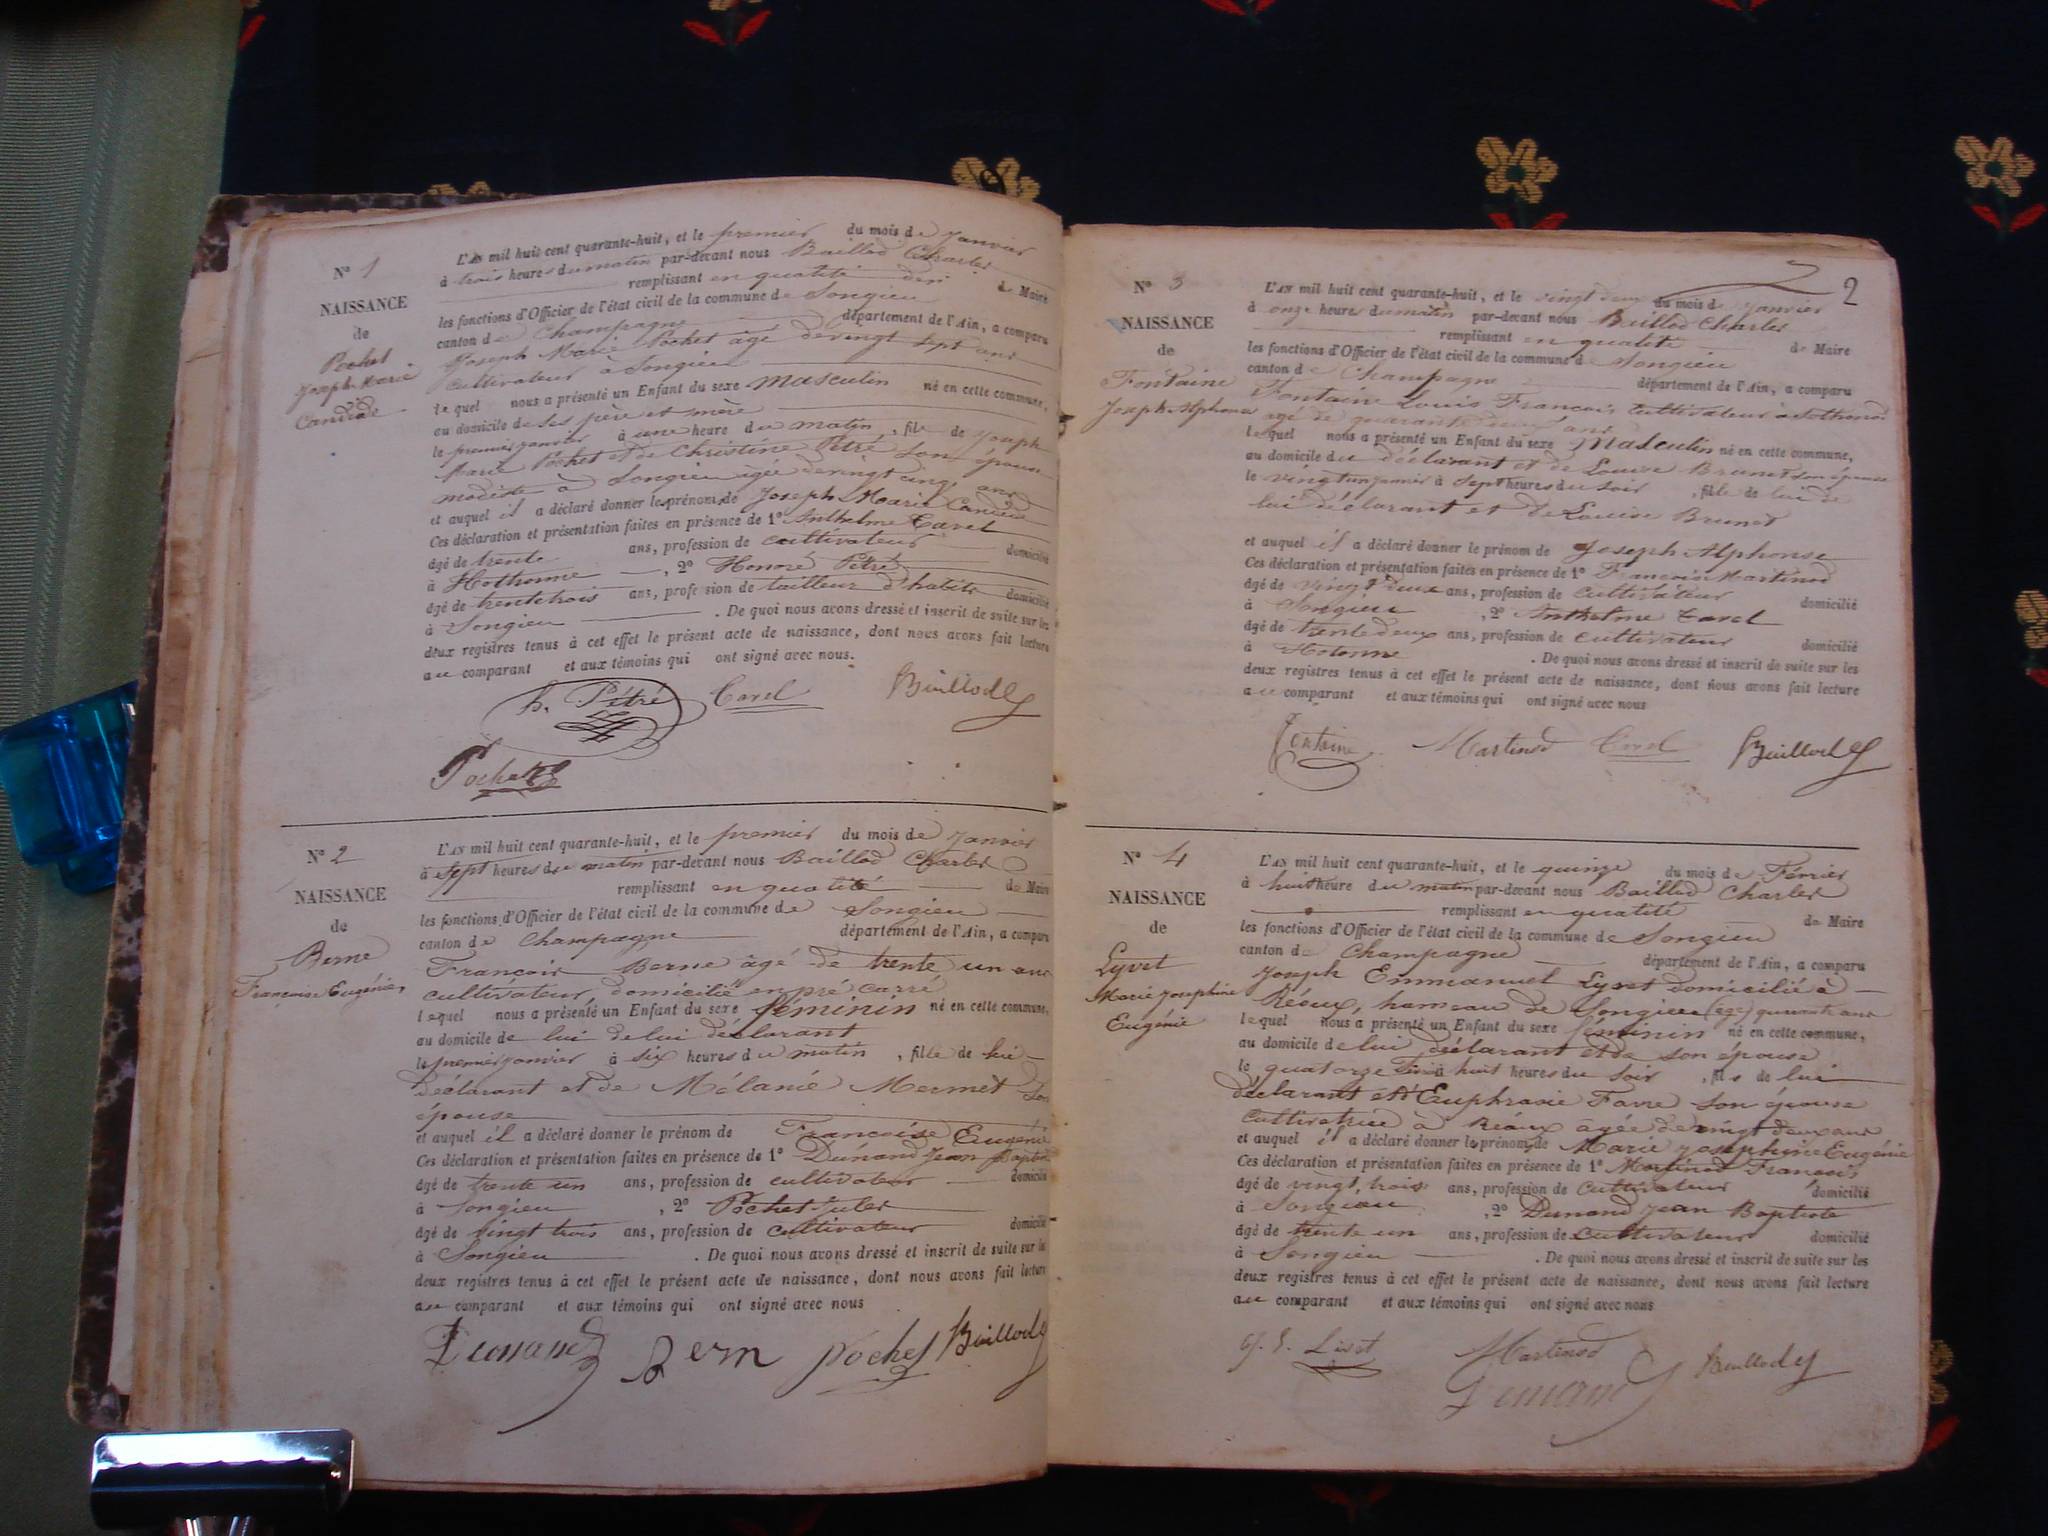 N° 1
NAISSANCE
de
Pochet
Joseph Marie
Candide
L'AN mil huit cent quarante-huit, et le premier du mois de Janvier
à trois heures du matin par-devant nous Baillod Charles
remplissant en qualité de Maire
les fonctions d'Officier de l'état civil de la commune de Songieu
canton de Champagne département de l'Ain, a comparu
Joseph Marie Pochet âgé de vingt sept ans
cultivateur à Songieu
lequel nous a présenté un Enfant du sexe masculin né en cette commune,
au domicile de ses père et mère
le premier janvier à une heure du matin, fils de Joseph
Marie Pochet et de Christine Pétré son épouse
modiste à Songieu âgée de vingt cinq ans
et auquel il a déclaré donner les prénoms de Joseph Marie Candide
Ces déclaration et présentation faites en présence de 1° Anthelme Tavel
âgé de trente ans, profession de cultivateur domicilié
à Hothonne, 2° Honoré Pétré
âgé de trente trois ans, profession de tailleur d'habits domicilié
à Songieu. De quoi nous avons dressé et inscrit de suite sur les
deux registres tenus à cet effet le présent acte de naissance, dont nous avons fait lecture
au comparant et aux témoins qui ont signé avec nous.
h. Pétré Tavel Baillod
Pochet
N° 2
NAISSANCE
de
Berne
Françoise Eugénie
L'AN mil huit cent quarante-huit, et le premier du mois de Janvier
à sept heures du matin par-devant nous Baillod Charles
remplissant en qualité de Maire
les fonctions d'Officier de l'état civil de la commune de Songieu
canton de Champagne département de l'Ain, a comparu
François Berne âgé de trente un ans
cultivateur domicilié en pré carré
lequel nous a présenté un Enfant du sexe féminin né en cette commune,
au domicile de lui de lui déclarant
le premier janvier à six heures du matin, fille de lui
déclarant et de Mélanie Mermet son
épouse
et auquel il a déclaré donner le prénom de Françoise Eugénie
Ces déclaration et présentation faites en présence de 1° Dunand Jean Baptiste
âgé de trente un ans, profession de cultivateur domicilié
à Songieu, 2° Pochet Jules
âgé de vingt trois ans, profession de cultivateur domicilié
à Songieu. De quoi nous avons dressé et inscrit de suite sur les
deux registres tenus à cet effet le présent acte de naissance, dont nous avons fait lecture
au comparant et aux témoins qui ont signé avec nous
Dunand Bern pochet Baillod
2
N° 3
NAISSANCE
de
Fontaine
Joseph Alphonse
L'AN mil huit cent quarante-huit, et le vingt deux du mois de janvier
à onze heures du matin par-devant nous Baillod Charles
remplissant en qualité de Maire
les fonctions d'Officier de l'état civil de la commune de Songieu
canton de Champagne département de l'Ain, a comparu
Fontaine Louis François cultivateur à Sothonod
âgé de quarante ans
lequel nous a présenté un Enfant du sexe Masculin né en cette commune,
au domicile du déclarant et de Louise Brunet son épouse
le vingt un janvier à sept heures du soir, fils de lui de
lui déclarant et de Louise Brunet
et auquel il a déclaré donner le prénom de Joseph Alphonse
Ces déclaration et présentation faites en présence de 1° François Martinod
âgé de vingt deux ans, profession de cultivateur domicilié
à Songieu, 2° Anthelme Tavel
âgé de trente deux ans, profession de cultivateur domicilié
à Hotonne. De quoi nous avons dressé et inscrit de suite sur les
deux registres tenus à cet effet le présent acte de naissance, dont nous avons fait lecture
au comparant et aux témoins qui ont signé avec nous
Fontaine Martinod Tavel Baillod
N° 4
NAISSANCE
de
Lyvet
Marie Josephine
Eugénie
L'AN mil huit cent quarante-huit, et le quinze du mois de Février
à huit heure du matin par-devant nous Baillod Charles
remplissant en qualité de Maire
les fonctions d'Officier de l'état civil de la commune de Songieu
canton de Champagne département de l'Ain, a comparu
Joseph Emmanuel Lyvet domicilié à
Réoux, hameau de Songieu (agé) quarante ans
lequel nous a présenté un Enfant du sexe féminin né en cette commune,
au domicile de lui déclarant et de son épouse
le quatorze à huit heures du soir, fils de lui
déclarant et d'Euphrasie Favre son épouse
cultivatrice à Réoux agée de vingt deux ans
et auquel il a déclaré donner les prénoms de Marie Josephine Eugénie
Ces déclaration et présentation faites en présence de 1° Martinod François
âgé de vingt trois ans, profession de Cultivateur domicilié
à Songieu, 2° Dunand Jean Baptiste
âgé de trente un ans, profession de Cultivateur domicilié
à Songieu. De quoi nous avons dressé et inscrit de suite sur les
deux registres tenus à cet effet le présent acte de naissance, dont nous avons fait lecture
au comparant et aux témoins qui ont signé avec nous
Livet Martinod Baillod
Dunand